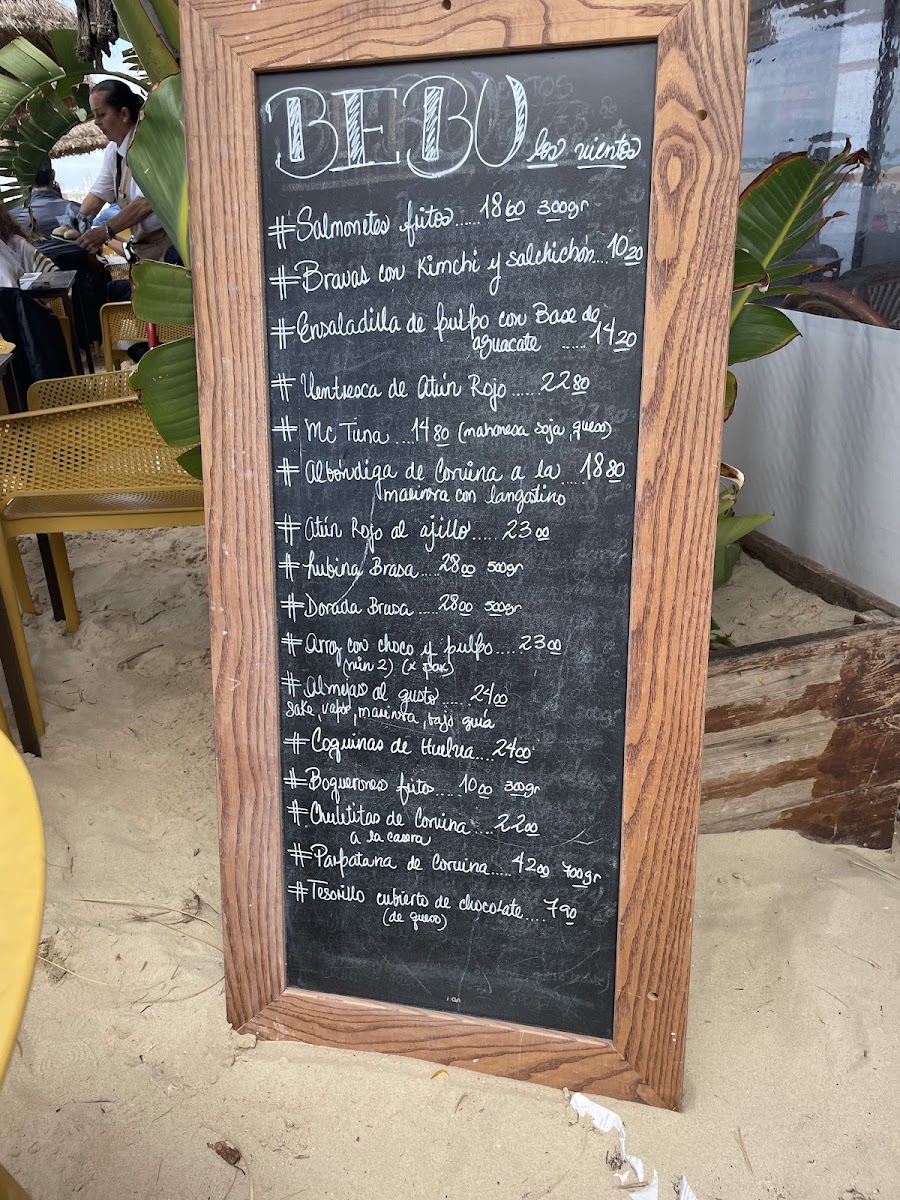 BEBO los vientos
#Salmonetes fritos......1860 300gr
#Bravas con Kimchi y salchichón...1020
#Ensaladilla de pulpo con Base de
aguacate ......1420
#Ventresca de Atún Rojo......2280
#Mc Tuna ...1480 (mahonesa soja, queso)
#Albóndiga de Corvina a la .....1880
marinera con langostino
#Atún Rojo al ajillo.....2300
#Lubina Brasa....2800 500gr
#Dorada Brasa....2800 500gr
#Arroz con choco y pulpo....2300
(min 2) (x pax)
#Almejas al gusto.....2400
Sake, vapor, marinera, bajo guía
#Coquinas de Huelva....2400
#Boquerones fritos.....1000 300gr
#Chuletitas de Corvina....2200
a la casera
#Parpatana de Corvina.....4200 700gr
#Tesorillo cubierto de chocolate....790
(de queso)